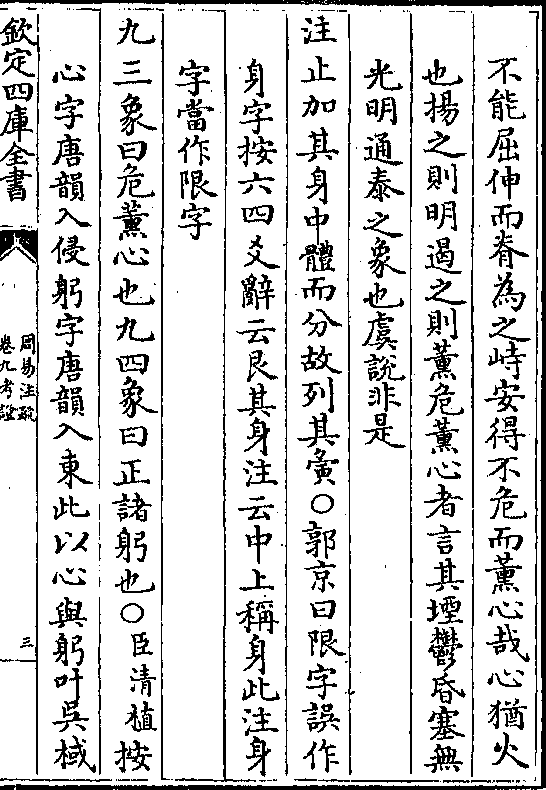 不能屈伸而脊為之峙安得不危而薰心哉心猶火
也揚之則明遏之則薰危薰心者言其堙鬱昏塞無
光明通泰之象也虞說非是
注止加其身中體而分故列其夤〇郭京曰限字誤作
身字按六四爻辭云艮其身注云中上稱身此注身
字當作限字
九三象曰危薰心也九四象曰正諸躬也〇臣清植按
心字唐韻入侵躬字唐韻入東此以心與躬叶吳棫
欽定四庫全書
周易注疏
卷九考證
三